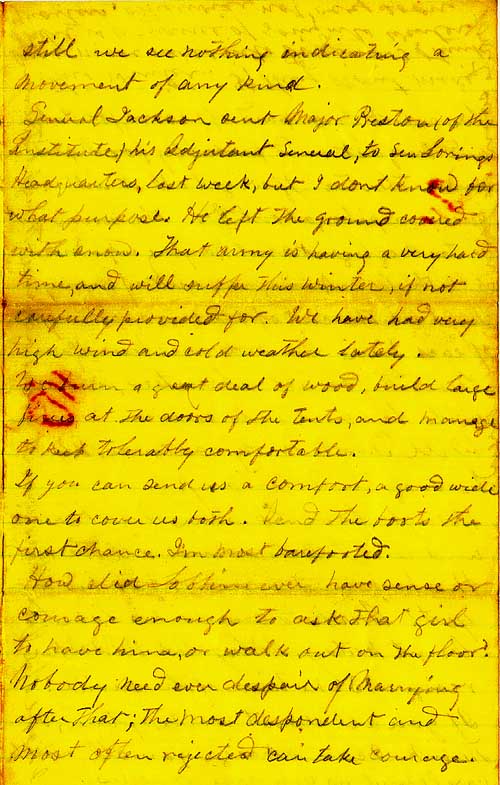 still we see nothing indicating a
movement of any kind.
General Jackson sent Major Preston (of the
Institute) his Adjutant General, to Gen Lorings
Headquarters, last week, but I dont know for
what purpose. He left the ground covered
with snow. That army is having a very hard
time, and will suffer this winter, if not
carefully provided for. We have had very
high wind and cold weather lately.
We burn a great deal of wood, build large
fires at the doors of the Tents, and manage
to keep tolerably comfortable.
If you can send us a comfort, a good wide
one to cover us both. Send the boots the
first chance. I'm most barefooted.
How did ever have sense or
courage enough to ask that girl
to have him, or walk out on the floor?
Nobody need ever despair of marrying
after that; the most despondent and
most often rejected can take courage.